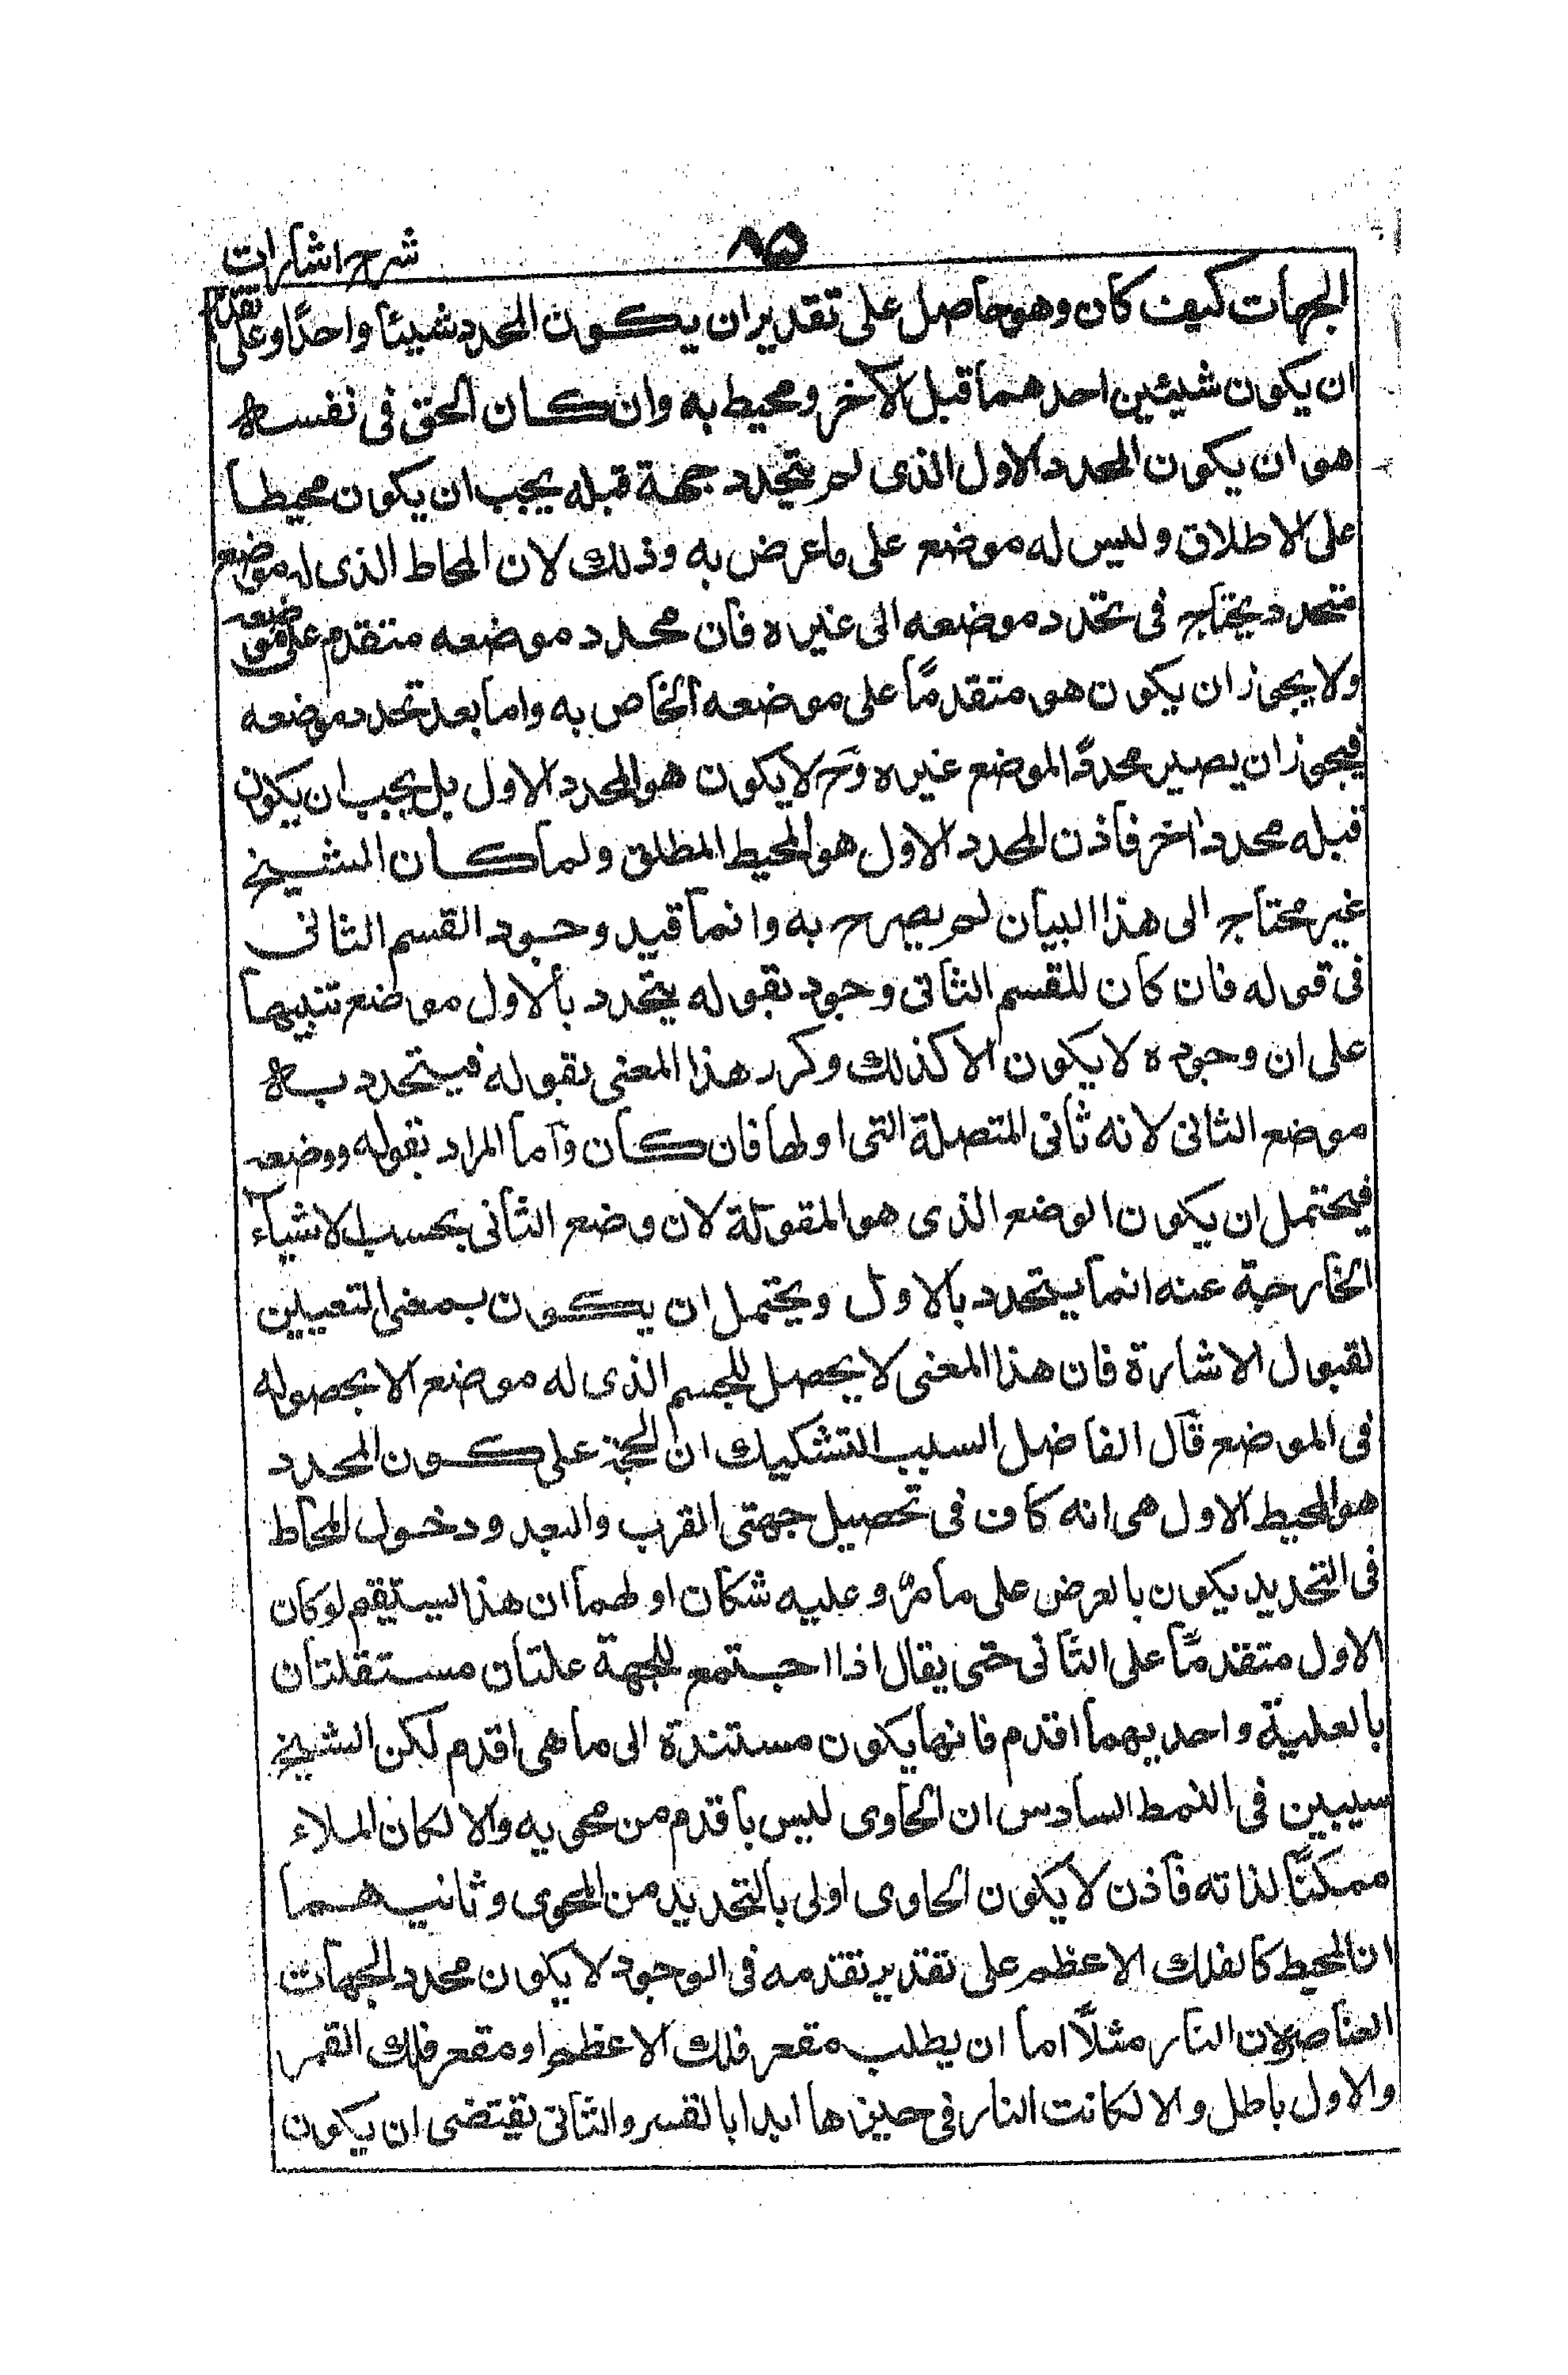 شرح اشارات
۸۵
الجهات كيف كان وهو حاصل على تقدير ان يكون المحدد شيئا واحدا وعلى تقدير
ان يكون شيئين احدهما قبل الآخر ومحيط به وان كان الحق فى نفسه
هو ان يكون المحدد الاول الذى لم يتحدد جهة قبله يجب ان يكون محيطا
على الاطلاق وليس له موضع على ما عرض به وذلك لان المحاط الذى له موضع
متحدد يحتاج فى تحدد موضعه الى غيره فان محدد موضعه متقدم على موضعه
ولا يجوز ان يكون هو متقدمًا على موضعه الخاص به واما بعد تحدد موضعه
فيجوز ان يصير محددًا لموضع غيره وح لا يكون هو المحدد الاول بل يجب ان يكون
قبله محدد اخر فاذن المحدد الاول هو المحيط المطلق ولما كان الشيخ
غير محتاج الى هذا البيان لم يصرح به وانما قيد وجود القسم الثانى
فى قوله فان كان للقسم الثانى وجود بقوله يتحدد بالاول موضع تنبيها
على ان وجوده لا يكون الا كذلك وكرر هذا المعنى بقوله فيتحدد به
موضع الثانى لانه ثانى المتصلة التى اولها فان كان وآما المراد بقوله ووضعه
فيحتمل ان يكون الوضع الذى هو المقولة لان وضع الثانى بحسب الاشياء
الخارجة عنه انما يتحدد بالاول ويحتمل ان يكون بمعنى التعيين
لقبول الاشارة فان هذا المعنى لا يحصل للجسم الذى له موضع الا بحصوله
فى الموضع قال الفاضل السبب التشكيك ان الحجة على كون المحدد
هو المحيط الاول هى انه كاف فى تحصيل جهتى القرب والبعد ودخول المحاط
فى التحديد يكون بالعرض على ما مرّ وعليه شكان اولهما ان هذا يستقيم لو كان
الاول متقدمًا على الثانى حتى يقال اذا اجتمع للجهة علتان مستقلتان
بالعلية واحديهما اقدم فانها يكون مستندة الى ما هى اقدم لكن الشيخ
سيبين فى النمط السادس ان الحاوى ليس باقدم من محويه والا لكان الملاء
ممكنًا لذاته فاذن لا يكون الحاوى اولى بالتحديد من المحوى وثانيهما
ان المحيط كالفلك الاعظم على تقدير تقدمه فى الوجود لا يكون محدد الجهات
العناصر لان النار مثلًا اما ان يطلب مقعر فلك الاعظم او مقعر فلك القمر
والاول باطل والا لكانت النار فى حيزها ابدا بالقسر والثانى يقتضى ان يكون